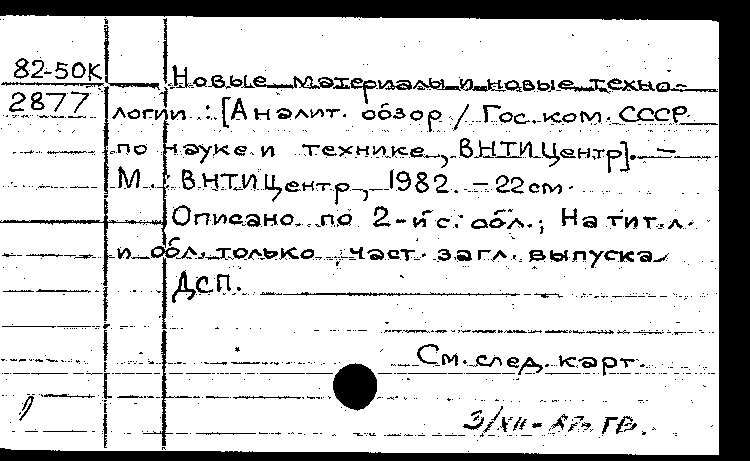 82-50К Новые материалы и новые техно-
2877 логии : [Аналит. обзор / Гос. ком. СССР
по науке и технике, ВНТИЦентр]. –
М. : ВНТИЦентр, 1982. – 22 см.
Описано по 2-й с. обл.; На тит. л.
и обл. только част. загл. выпуска
ДСП.
См. след. карт.
3/XII-